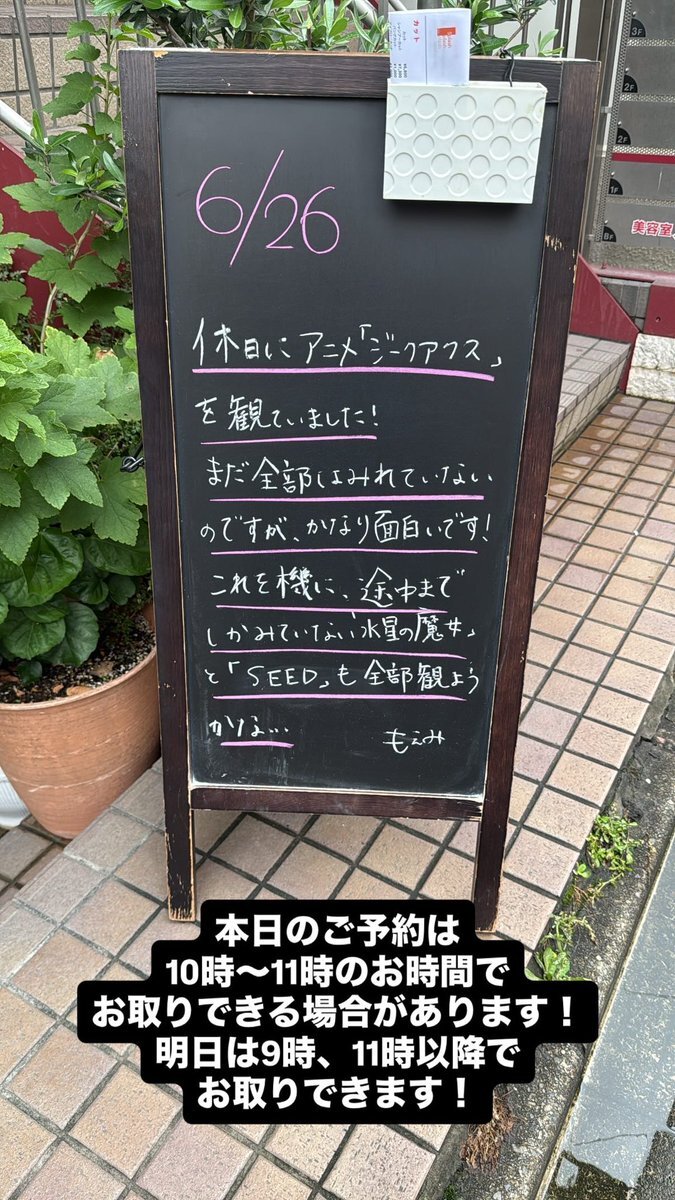 カット
6/26
休日にアニメ「ジークアクス」
を観ていました!
まだ全部はみれていない
のですが、かなり面白いです!
これを機に、途中まで
しかみていない「水星の魔女」
と「SEED」も全部観よう
かな...
もえみ
3F
2F
2F
1F
BF
美容室
本日のご予約は
10時〜11時のお時間で
お取りできる場合があります！
明日は9時、11時以降で
お取りできます！